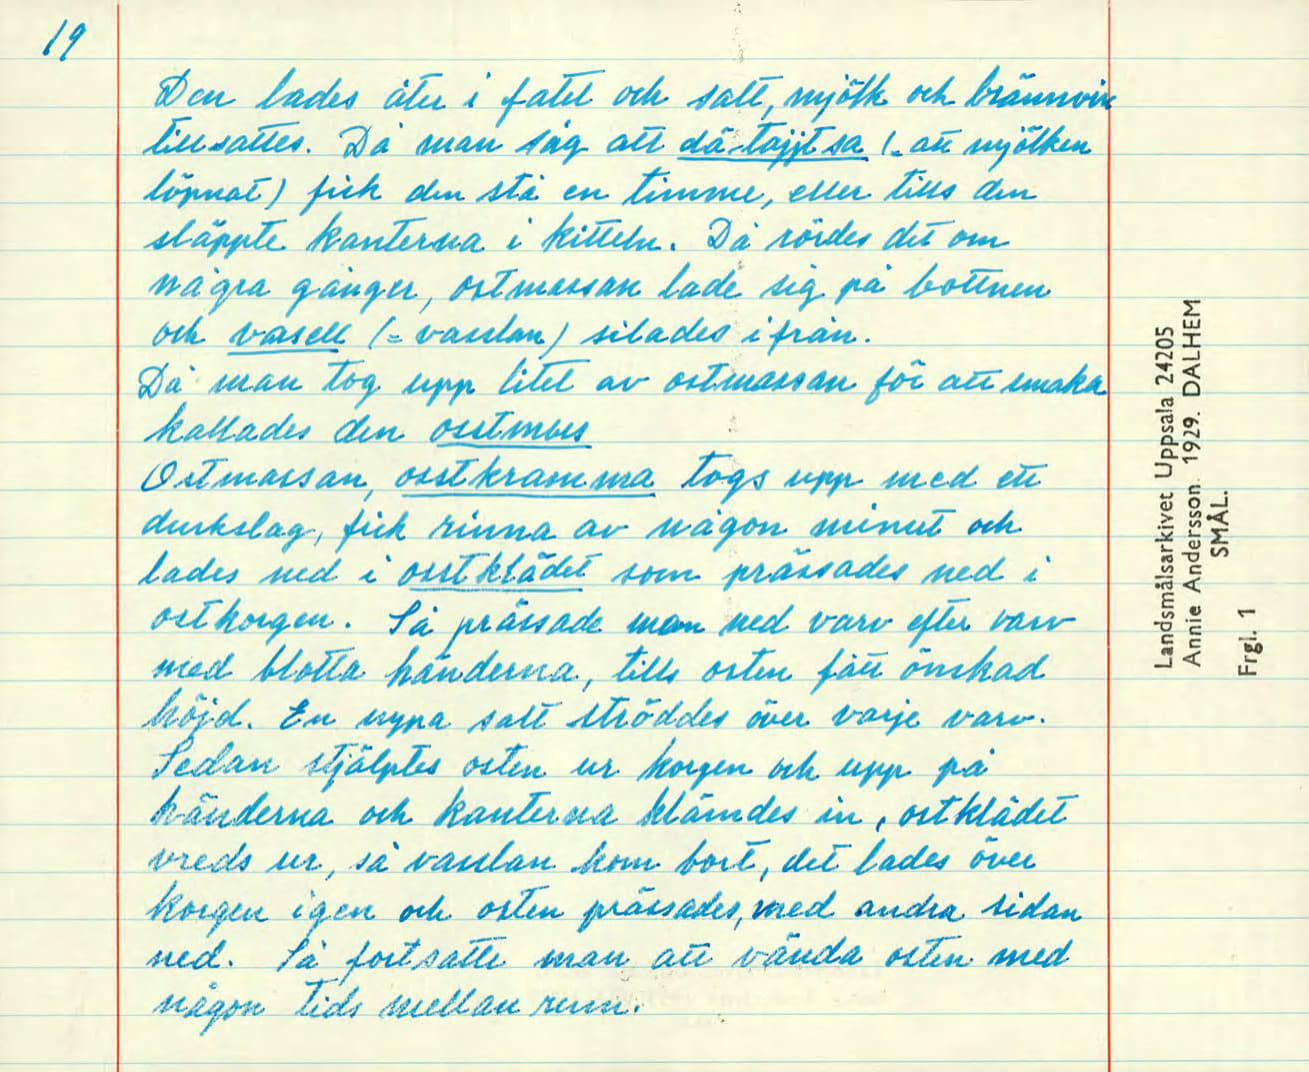 19
Den lades åter i fatet och salt, mjölk och brännvin
tillsattes. Då man såg att dä tajjt sa (= att mjölken
löpnat) fick den stå en timme, eller tills den
släppte kanterna i kitteln. Då rördes det om
några gånger, ostmassan lade sig på bottnen
och vasell (= vasslan) silades ifrån.
Då man tog upp litet av ostmassan för att smaka
kallades den osstmos
Ostmassan, osstkramma togs upp med ett
durkslag, fick rinna av någon minut och
lades ned i osstklädet som prässades ned i
ostkorgen. Så prässade man ned varv efter varv
med blotta händerna, tills osten fått önskad
höjd. En nypa salt ströddes över varje varv.
Sedan stjälptes osten ur korgen och upp på
händerna och kanterna klämdes in, ostklädet
vreds ur, så vasslan kom bort, det lades över
korgen igen och osten prässades, med andra sidan
ned. Så fortsatte man att vända osten med
någon tids mellanrum.
Landsmålsarkivet Uppsala 24205
Annie Andersson. 1929. DALHEM
SMÅL.
Frgl. 1